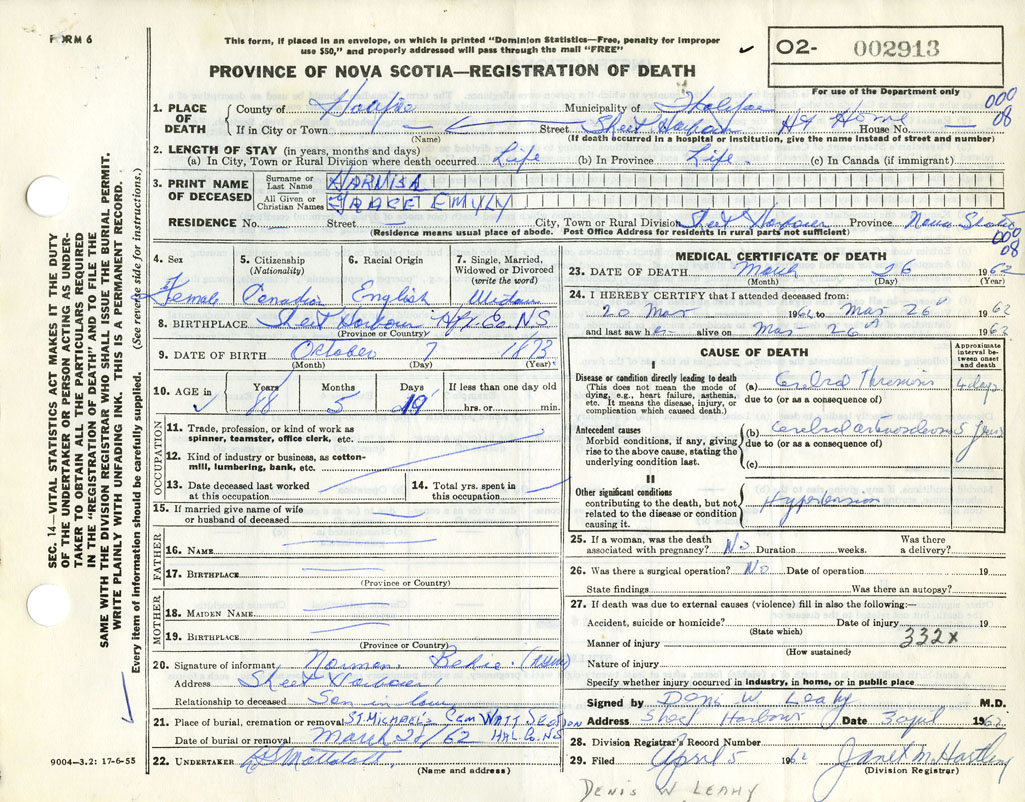 FORM 6
This form, if placed in an envelope, on which is printed "Dominion Statistics—Free, penalty for improper
use $50," and properly addressed will pass through the mail "FREE"
✓
O2- 002913
PROVINCE OF NOVA SCOTIA—REGISTRATION OF DEATH
For use of the Department only
000
08
1. PLACE OF DEATH
County of Halifax Municipality of Halifax
If in City or Town Street Sheet Harbour At Home House No.
(Name) (If death occurred in a hospital or institution, give the name instead of street and number)
2. LENGTH OF STAY (in years, months and days)
(a) In City, Town or Rural Division where death occurred Life (b) In Province Life. (c) In Canada (if immigrant)
3. PRINT NAME OF DECEASED
Surname or Last Name HARNISH
All Given or Christian Names GRACE EMILY
RESIDENCE No. Street City, Town or Rural Division Sheet Harbour Province Nova Scotia
(Residence means usual place of abode. Post Office Address for residents in rural parts not sufficient)
000
08
4. Sex Female
5. Citizenship (Nationality) Canadian
6. Racial Origin English
7. Single, Married, Widowed or Divorced (write the word) Widow
8. BIRTHPLACE Sheet Harbour Hfx Co. NS
(Province or Country)
9. DATE OF BIRTH October 7 1873
(Month) (Day) (Year)
10. AGE in Years 88 Months 5 Days 19 If less than one day old
hrs. or min.
OCCUPATION
11. Trade, profession, or kind of work as
spinner, teamster, office clerk, etc.
12. Kind of industry or business, as cotton-
mill, lumbering, bank, etc.
13. Date deceased last worked at this occupation
14. Total yrs. spent in this occupation
15. If married give name of wife
or husband of deceased
FATHER
16. NAME
17. BIRTHPLACE
(Province or Country)
MOTHER
18. MAIDEN NAME
19. BIRTHPLACE
(Province or Country)
20. Signature of informant Norman
Address Sheet Harbour
Relationship to deceased Son in law
21. Place of burial, cremation or removal ST. MICHAEL'S CEM WATT SECTION
Date of burial or removal March 28/62 HAL. CO. NS
22. UNDERTAKER
(Name and address)
9004—3.2: 17-6-55
MEDICAL CERTIFICATE OF DEATH
23. DATE OF DEATH March 26 1962
(Month) (Day) (Year)
24. I HEREBY CERTIFY that I attended deceased from:
20 Mar 1962 to Mar 26th 1962
and last saw her alive on Mar 26th 1962
CAUSE OF DEATH
Approximate interval between onset and death
I
Disease or condition directly leading to death
(This does not mean the mode of
dying, e.g., heart failure, asthenia,
etc. It means the disease, injury, or
complication which caused death.)
(a) Cerebral Thrombosis 4 days
due to (or as a consequence of)
Antecedent causes
Morbid conditions, if any, giving
rise to the above cause, stating the
underlying condition last.
(b) Cerebral arteriosclerosis 5 years
due to (or as a consequence of)
(c)
II
Other significant conditions
contributing to the death, but not
related to the disease or condition
causing it.
Hypertension
25. If a woman, was the death
associated with pregnancy? No Duration weeks. Was there a delivery?
26. Was there a surgical operation? No Date of operation 19
State findings Was there an autopsy?
27. If death was due to external causes (violence) fill in also the following:—
Accident, suicide or homicide? Date of injury 19
(State which)
Manner of injury 332x
(How sustained)
Nature of injury
Specify whether injury occurred in industry, in home, or in public place
Signed by Denis W Leahy M.D.
Address Sheet Harbour Date 3 april 1962
28. Division Registrar's Record Number
29. Filed April 5 1962 Janet M. Hartling
(Division Registrar)
DENIS W LEAHY
SEC. 14—VITAL STATISTICS ACT MAKES IT THE DUTY
OF THE UNDERTAKER OR PERSON ACTING AS UNDER-
TAKER TO OBTAIN ALL THE PARTICULARS REQUIRED
IN THE "REGISTRATION OF DEATH" AND TO FILE THE
SAME WITH THE DIVISION REGISTRAR WHO SHALL ISSUE THE BURIAL PERMIT.
WRITE PLAINLY WITH UNFADING INK. THIS IS A PERMANENT RECORD.
Every item of information should be carefully supplied. (See reverse side for instructions.)